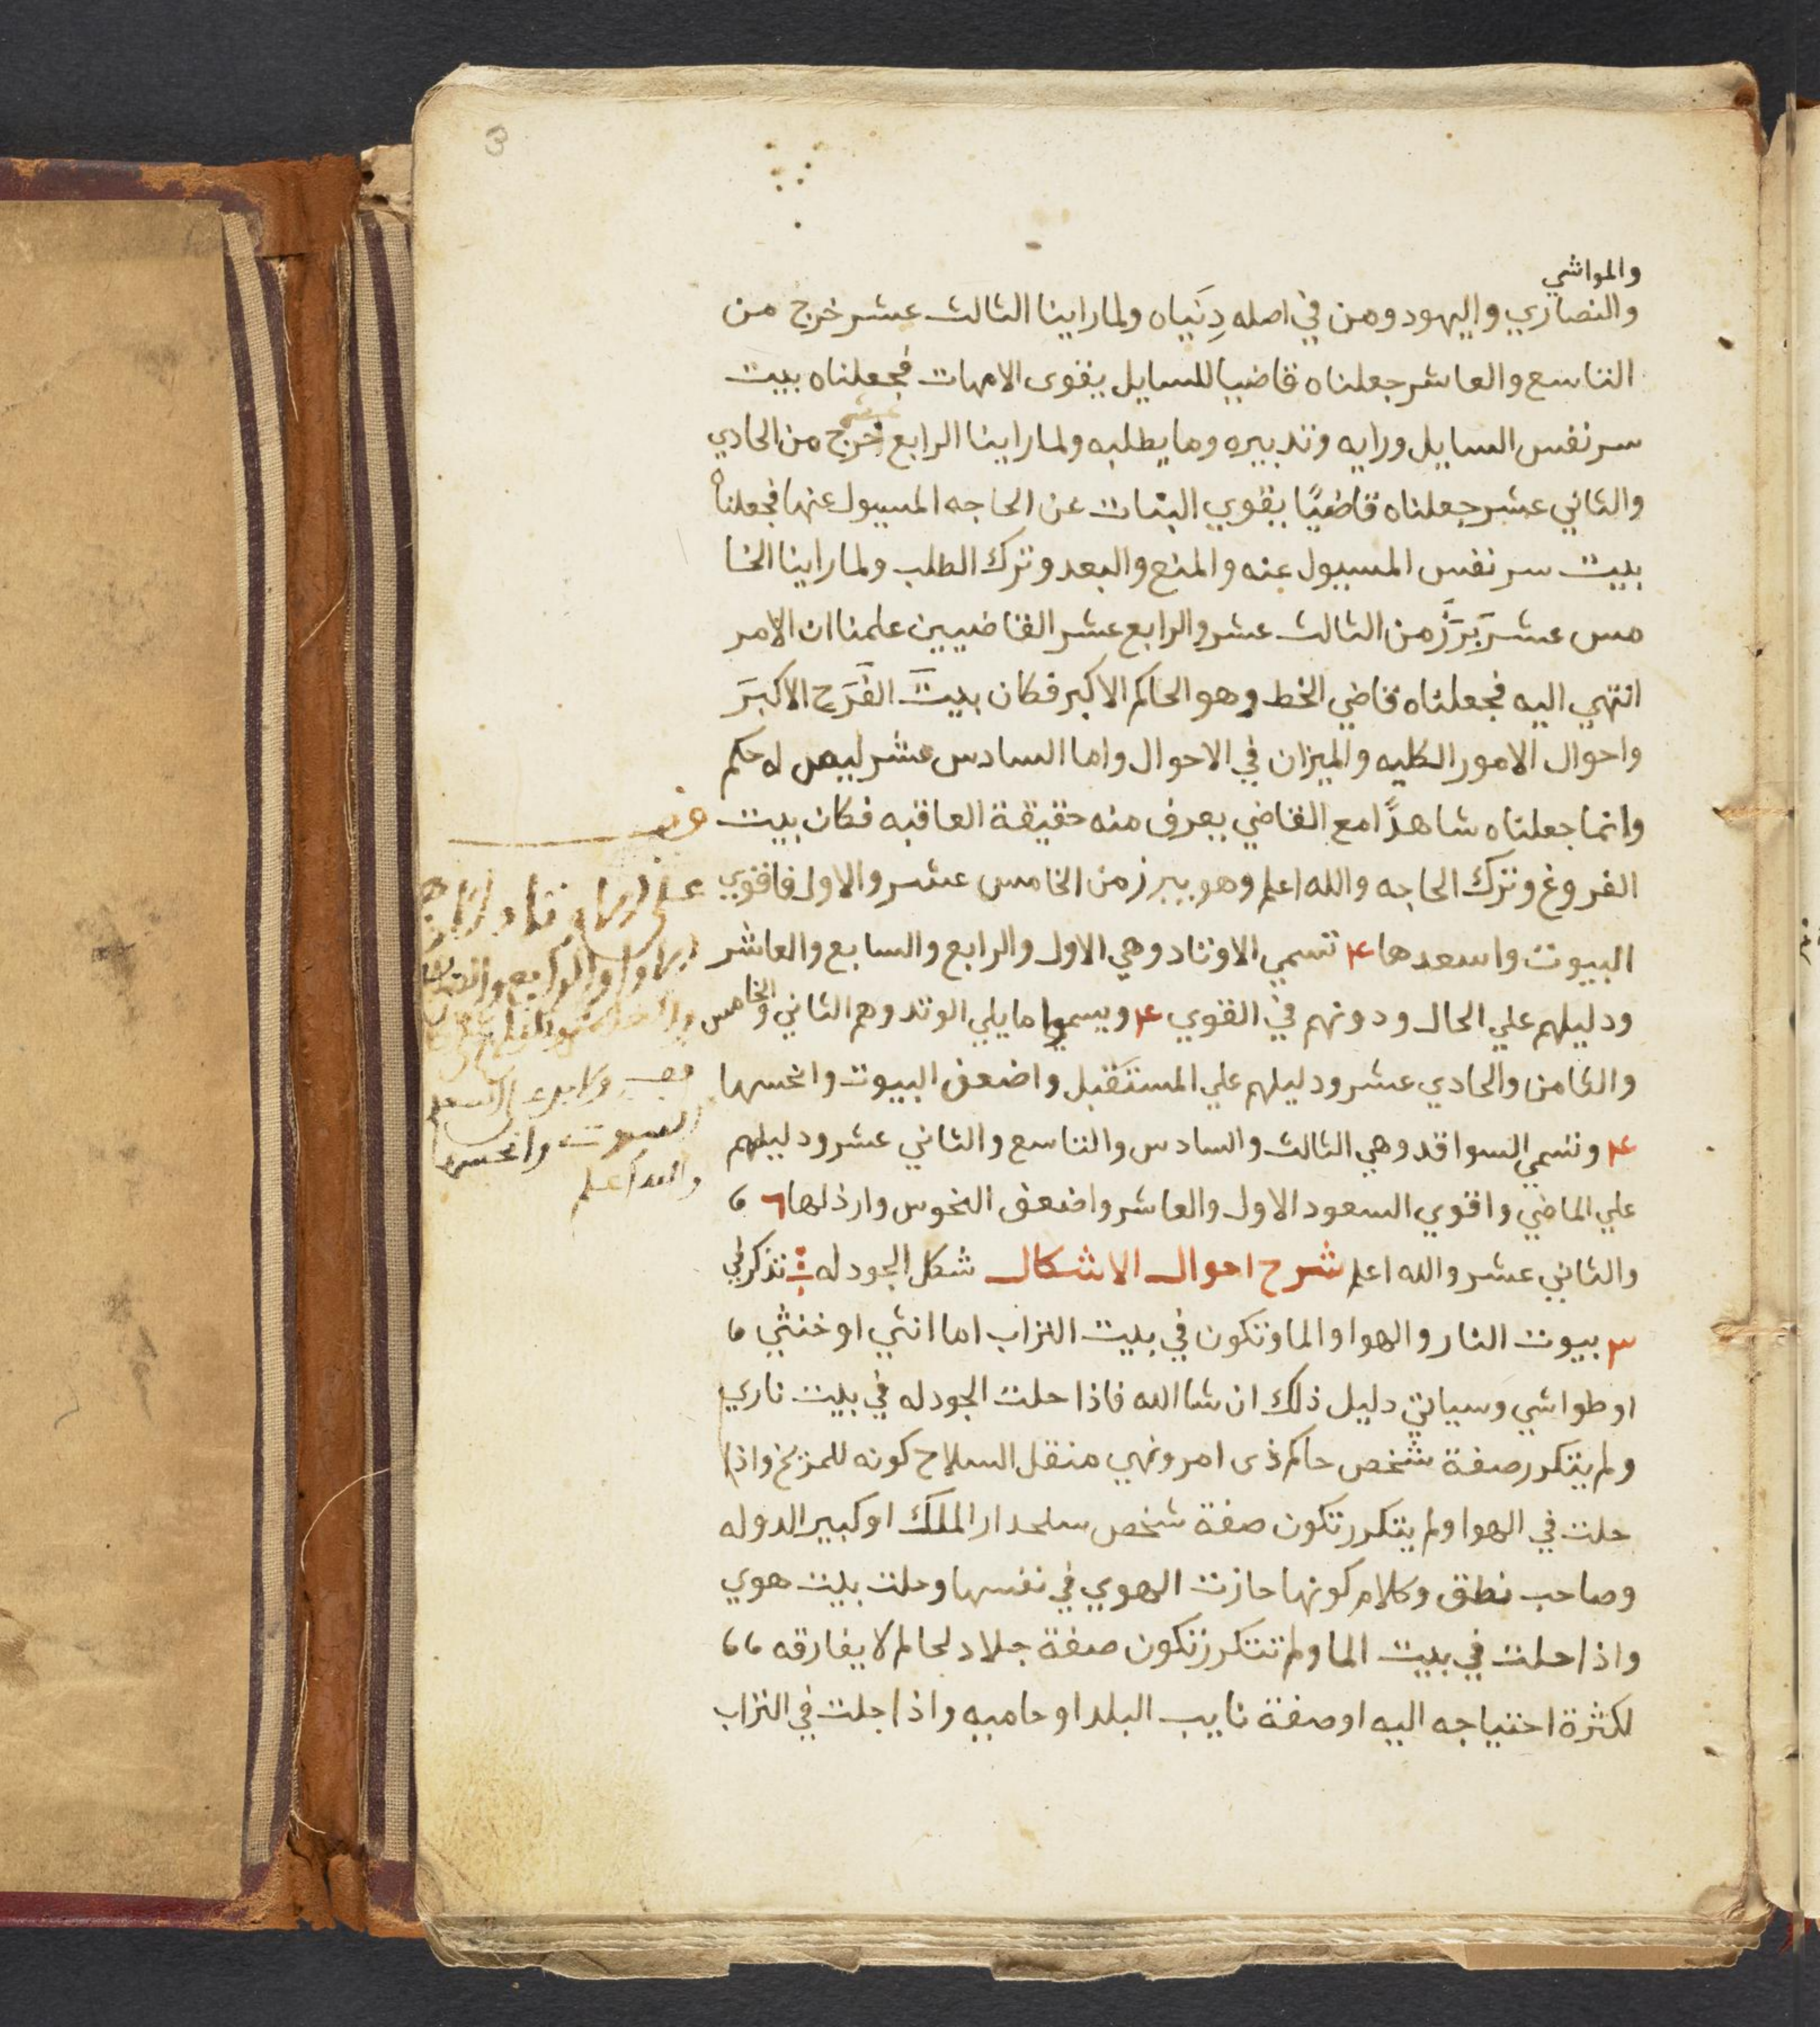 3
والمواشي
والنصاري واليهود ومن في اصله دِنَياه ولما راينا الثالث عشر خرج من
التاسع والعاشر جعلناه قاضيا للسايل يقوى الامهات فجعلناه بيت
سر نفس السايل ورايه وتدبيره وما يطلبه ولما راينا الرابع عشر خرج من الحادي
والثاني عشر جعلناه قاضيًا يقوي البنات عن الحاجه المسيول عنها فجعلناه
بيت سر نفس المسيول عنه والمنع والبعد وترك الطلب ولما راينا الخا
مس عشر بَرَزَ من الثالث عشر والرابع عشر القاضيين علمنا ان الامر
انتهي اليه فجعلناه قاضي الخط وهو الحاكم الاكبر فكان بيتَ الفَرَح الاكبرَ
واحوال الامور الكليه والميزان في الاحوال واما السادس عشر ليس له حكم
وانما جعلناه شاهدًا مع القاضي يعرف منه حقيقة العاقبه فكان بيت
الفروغ وترك الحاجه والله اعلم وهو يبرز من الخامس عشر والاول فاقوي
البيوت واسعدها ۴ تسمي الاوتاد وهي الاول والرابع والسابع والعاشر
ودليلهم علي الحال ودونهم في القوي ۴ ويسموا ما يلي الوتد وهم الثاني والخامس
والثامن والحادي عشر ودليلهم علي المستَقبل واضعف البيوت وانحسها
۴ وتسمي السواقد وهي الثالث والسادس والتاسع والثاني عشر ودليلهم
علي الماضي واقوي السعود الاول والعاشر واضعف النحوس وارذلها ٦
والثاني عشر والله اعلم شرح احوال الاشكال شكل الجودله تذكر في
۳ بيوت النار والهوا والما وتكون في بيت التراب اما انثي او خنثي
او طواشي وسياتي دليل ذلك ان شا الله فاذا حلت الجودله في بيت ناري
ولم يتكرر صفة شخص حاكم ذى امر ونهي منقل السلاح كونه للمزيخ واذا
حلت في الهوا ولم يتكرر تكون صفة شخص سلحدار الملك او كبير الدوله
وصاحب نطق وكلام كونها حازت الهوي في نفسها وحلت بيت هوي
واذا حلت في بيت الما ولم تتكرر تكون صفة جلاد لحا لم لا يفارقه
لكثرة احتياجه اليه او صفة نايب البلد او حاميه واذا حلت في التراب
البيوت وانحسها
والله اعلم